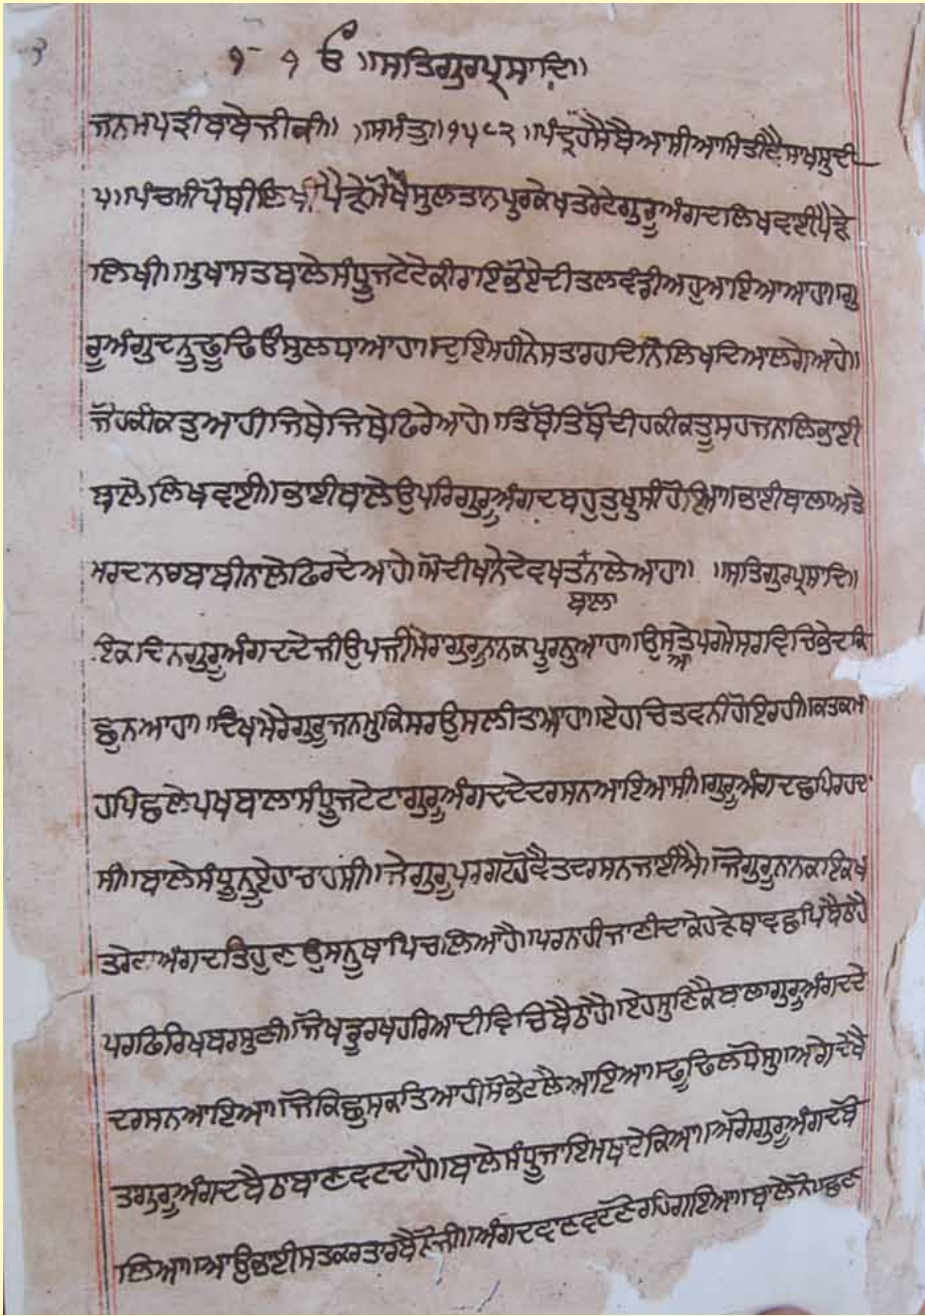 ੧ ੴ ॥ਸਤਿਗੁਰਪ੍ਰਸਾਦਿ॥
ਜਨਮਪਤ੍ਰੀਬਾਬੇਜੀਕੀ॥ ॥ਸਮੰਤੁ॥੧੫੮੨॥ਪੰਦ੍ਰਹਸੈਬੈਆਸੀਆਮਿਤੀਵੈਸਾਖਸੁਦੀ
੫॥ਪੰਚਮੀਪੋਥੀਲਿਖੀਪੈੜੇਮੋਖੈਸੁਲਤਾਨਪੁਰਕੇਖਤਰੇਟੇਗੁਰੂਅੰਗਦਲਿਖਵਾਈਪੈੜੇ
ਲਿਖੀ॥ਮੁਖਾਸਤਬਾਲੇਸੰਧੂਜਟੇਟੇਕੀਰਾਇਭੋਏਦੀਤਲਵੰਡੀਅਹੁਆਇਆਆਹਾ॥ਗੁ
ਰੂਅੰਗਦਨੂਢੂਢਿ ਆਹਾ॥ਦੁਇਮਹੀਨੇਸਤਾਰਹਦਿਨਿਲਿਖਦਿਆਲਗੇਆਹੇ॥
ਜੋਹਕੀਕਤੁਆਹੀਜਿਥੇਜਿਥੇਫਿਰੇਆਹੇ॥ਤਿਥੋਤਿਥੋਦੀਹਕੀਕਤੁਸਹਜਨਾਲਿਭਾਈ
ਬਾਲੇਲਿਖਵਾਈ॥ਭਾਈਬਾਲੇਉਪਰਿਗੁਰੂਅੰਗਦਬਹੁਤੁਖੁਸੀਹੋਇਆ॥ਭਾਈਬਾਲਾਅਤੇ
ਮਰਦਾਨਾਬਾਬੇਨਾਲੇਫਿਰਦੇਆਹੇ॥ ਵਖਤਨਾਲੇਆਹਾ॥ ॥ਸਤਿਗੁਰਪ੍ਰਸਾਦਿ॥
ਬਾਲਾ
ਇਕਦਿਨਗੁਰੂਅੰਗਦਦੇਜੀਉਪਜੀਮੇਰਾਗੁਰੂਨਾਨਕਪੂਰਨੁਆਹਾ॥ਉਸਤੇਪਰਮੇਸਰਵਿਚਿਭੇਦਕਿ
ਛੁਨਆਹਾ॥ਦੇਖਾਮੇਰੇਗੁਰੂਜਨਮੁਕਿਸਅਉਸਲੀਤਾਆਹਾ॥ਏਹਚਿਤਵਨੀਹੋਇਰਹੀ॥ਕਤਕਮਾ
ਹਪਿਛਲੇਪਖਬਾਲਾਸੰਧੂਜਟੇਟਾਗੁਰੂਅੰਗਦਦੇਦਰਸਨਆਇਆਸੀ॥ਗੁਰੂਅੰਗਦਛਪਿਰਹਦਾ
ਸੀ॥ਬਾਲੇਸੰਧੂਨੂਏਹਾਚਾਹਸੀ॥ਜੇਗੁਰੂਪਰਗਟਹੋਵੈਤਾਦਰਸਨਜਾਈਐ॥ਜੋਗੁਰੂਨਾਨਕਇਕਖ
ਤਰੇਟਾਅੰਗਦਤਿਹੁਣਉਸਨੂਥਾਪਿਚਲਿਆਹੈ॥ਪਰਨਹੀਜਾਣੀਦਾਕੇਹੜੇਥਾਵਛਪਿਬੈਠਾਹੈ
ਪਰਫਿਰਿਖਬਰਸੁਣੀ॥ਜੋਖਡੂਰਖਹਰਿਆਦੀਵਿਚਿਬੈਠਾਹੈ॥ਏਹਸੁਣਿਕੈਬਾਲਾਗੁਰੂਅੰਗਦਦੇ
ਦਰਸਨਆਇਆ॥ਜੋਕਿਛੁਸਕਤਿਆਹੀਸੋਭੇਟਲੈਆਇਆ॥ਢੂਢਿਲਧੋਸੁ॥ਅਗੇਦੇਖੈ
ਤਗੁਰੂਅੰਗਦਬੈਠਾਬਾਣਵਟਦਾਹੈ॥ਬਾਲੇਸੰਧੂਜਾਇਮਥਾਟੇਕਿਆ॥ਅਗੋਗੁਰੂਅੰਗਦ
ਲਿਆ॥ਆਉਭਾਈਸਤਕਰਤਾਰਬੈਠੋਜੀ॥ਅੰਗਦਵਾਣਵਟਣੋਰਹਿਗਇਆ॥ਬਾਲੇਨੋਪੁਛਣ